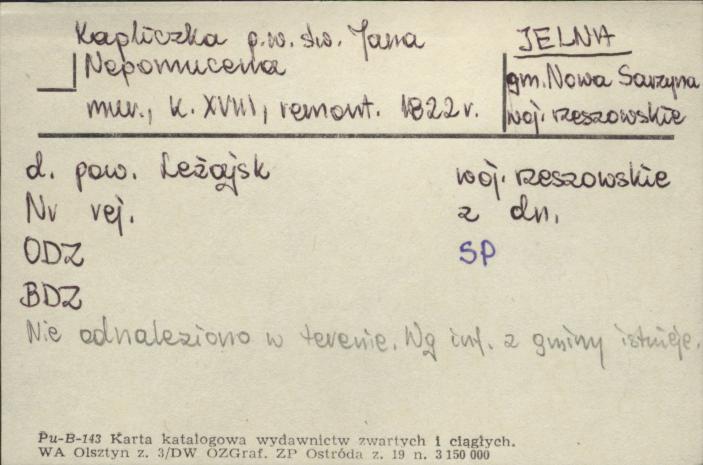 Kapliczka p.w. św. Jana
Nepomucena
mur., k. XVIII, remont. 1822 r.
JELNA
gm. Nowa Sarzyna
woj. rzeszowskie
d. pow. Leżajsk
woj. rzeszowskie
Nr rej.
z dn.
ODZ
SP
BDZ
Nie odnaleziono w terenie. Wg inf. z gminy istnieje.
Pu-B-143 Karta katalogowa wydawnictw zwartych i ciągłych.
WA Olsztyn z. 3/DW OZGraf. ZP Ostróda z. 19 n. 3 150 000